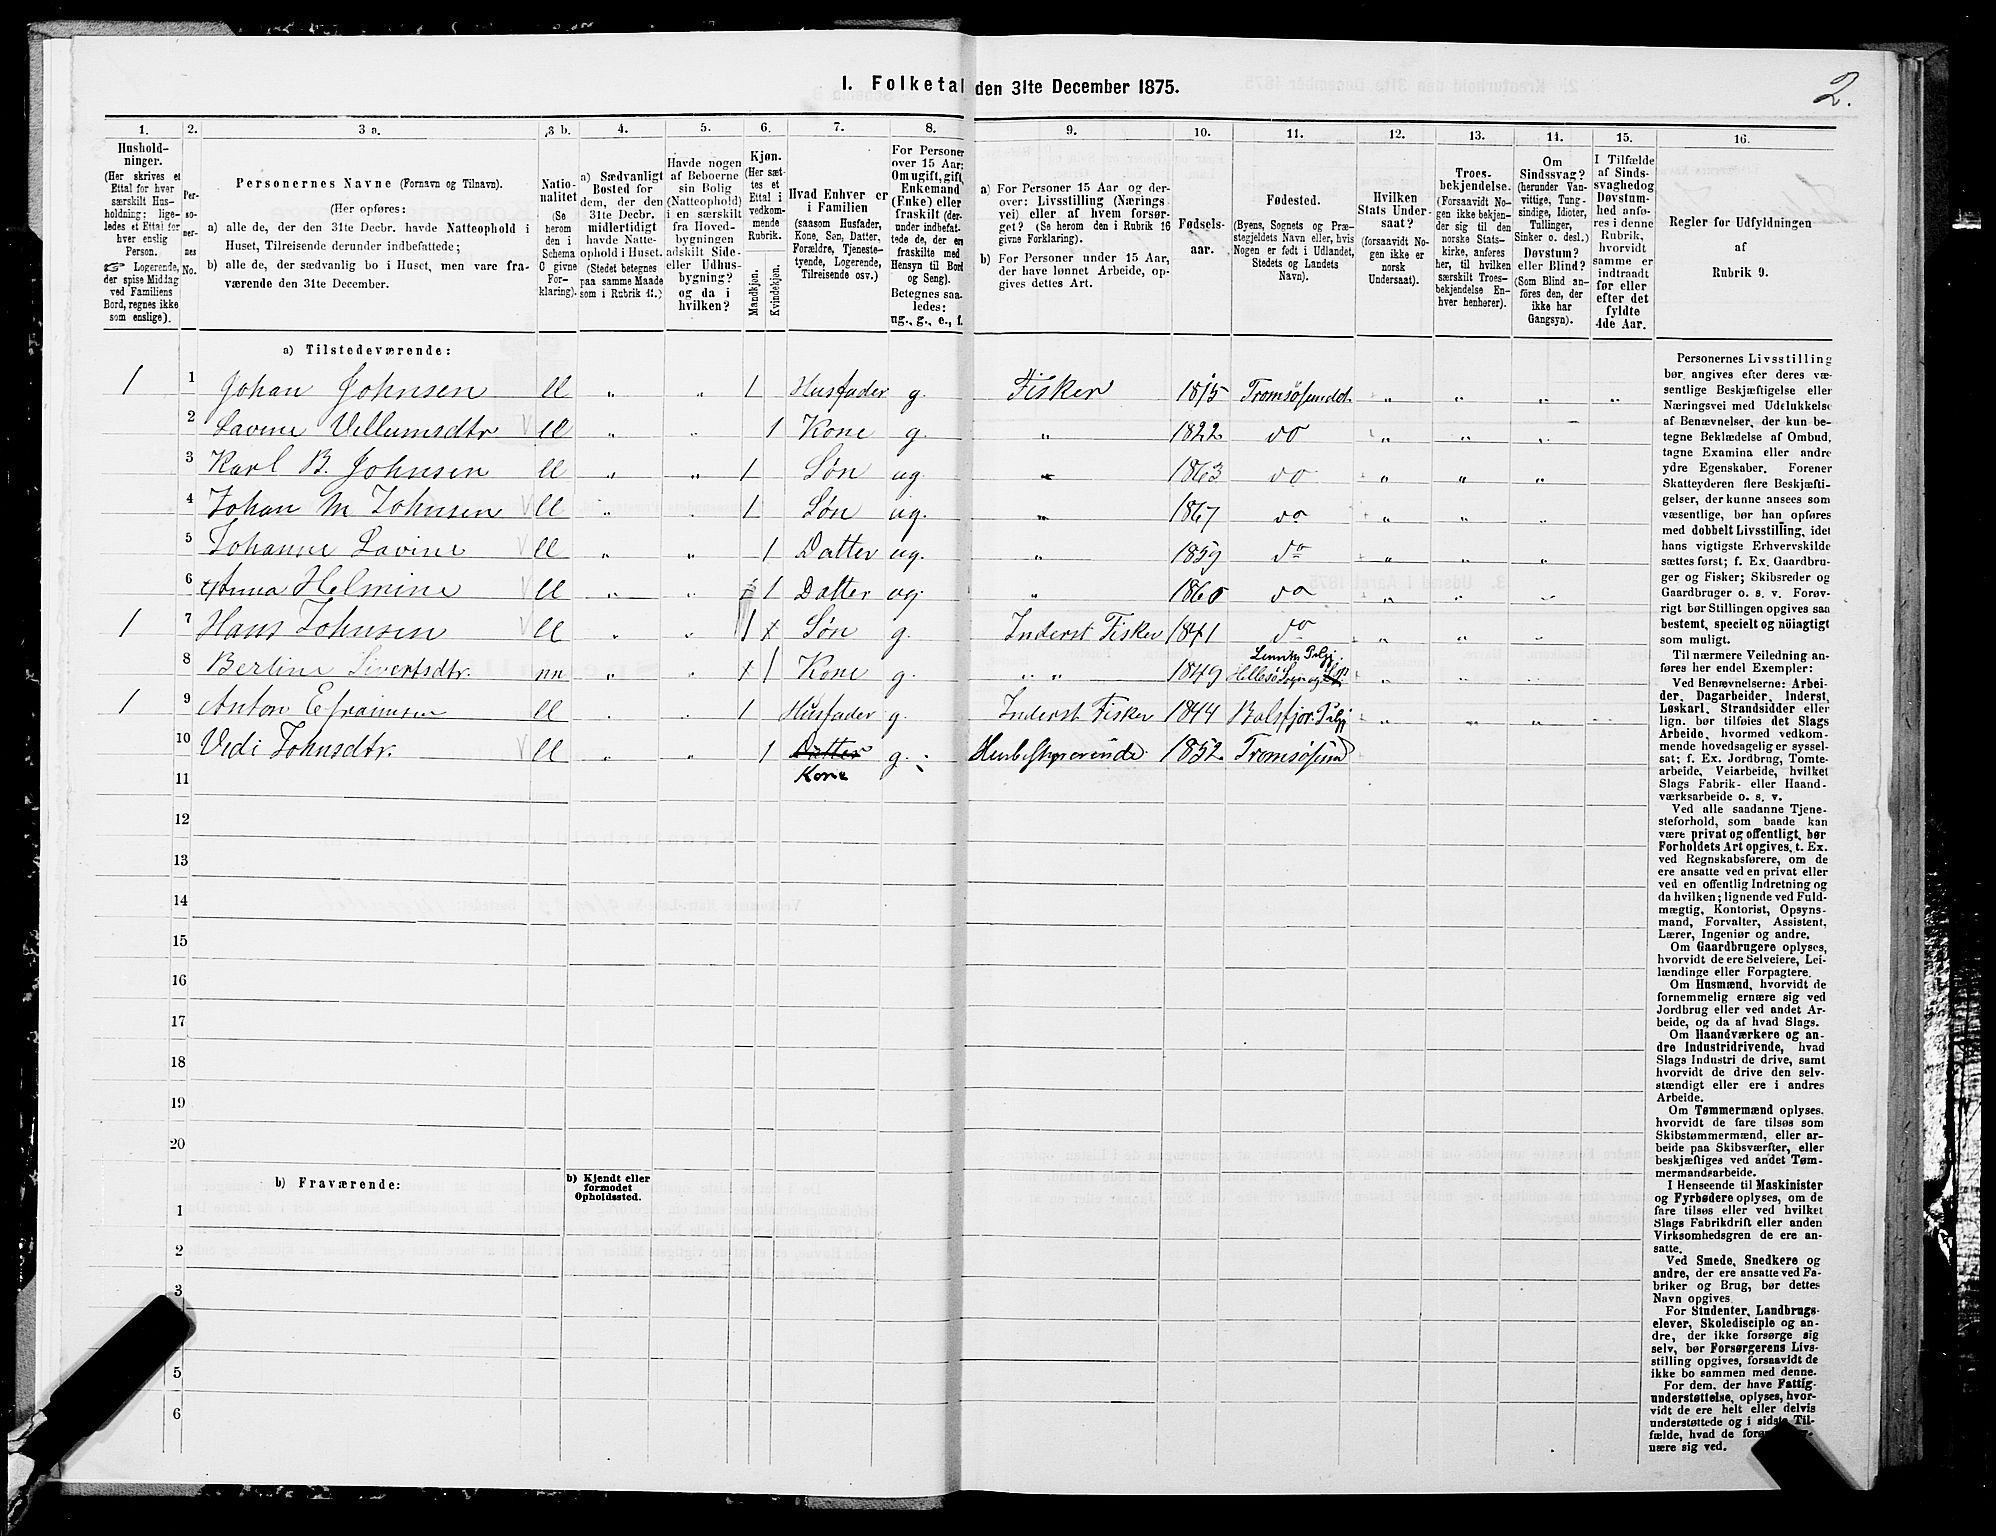 I. Folketal den 31te December 1875.
2.
1. 2. 3 a. 3 b. 4. 5. 6. 7. 8. 9. 10. 11. 12. 13. 14. 15. 16.
Hushold-
ninger.
(Her skrives et
Ettal for hver
særskilt Hus-
holdning; lige-
ledes et Ettal for
hver enslig
Person.
☞ Logerende,
der spise Middag
ved Familiens
Bord, regnes ikke
som enslige).
Per-
so-
ner-
nes
No.
Personernes Navne (Fornavn og Tilnavn).
(Her opføres:
a) alle de, der den 31te Decbr. havde Natteophold i
Huset, Tilreisende derunder indbefattede;
b) alle de, der sædvanlig bo i Huset, men vare fra-
værende den 31te December.
Natio-
nalitet
(Se
herom
den i
Schema
G givne
For-
klaring).
a) Sædvanligt
Bosted for
dem, der den
31te Decbr.
midlertidigt
havde Natte-
ophold i Huset.
(Stedet betegnes
paa samme Maade
som i Rubrik 11.)
Havde nogen
af Beboerne
sin Bolig
(Natteophold)
i en særskilt
fra Hoved-
bygningen
adskilt Side-
eller Udhus-
bygning?
og da i
hvilken?
Kjøn.
(Her sæt-
tes et
Ettal i
vedkom-
mende
Rubrik.
Mandkjøn.
Kvindekjøn.
Hvad Enhver er
i Familien
(saasom Husfader,
Kone, Søn, Datter,
Forældre, Tjeneste-
tyende, Logerende,
Tilreisende osv.)
For Personer
over 15 Aar:
Om ugift, gift,
Enkemand
(Enke) eller
fraskilt (der-
under indbefat-
tede de, der ere
fraskilte med
Hensyn til Bord
og Seng).
Betegnes saa-
ledes:
ug., g., e., f.
a) For Personer 15 Aar og der-
over: Livsstilling (Nærings-
vei) eller af hvem forsør-
get? (Se herom den i Rubrik 16
givne Forklaring).
b) For Personer under 15 Aar,
der have lønnet Arbeide, op-
gives dettes Art.
Fødsels-
aar.
Fødested.
(Byens, Sognets og Præ-
stegjeldets Navn eller, hvis
Nogen er født i Udlandet,
Stedets og Landets
Navn).
Hvilken
Stats Under-
saat?
(forsaavidt No-
gen ikke er
norsk
Undersaat).
Troes-
bekjendelse.
(Forsaavidt No-
gen ikke bekjen-
der sig til den
norske Stats-
kirke, anføres
her, til hvilken
særskilt Troes-
bekjendelse En-
hver henhører).
Om
Sindssvag?
(herunder Van-
vittige, Tung-
sindige, Idioter,
Tullinger,
Sinker o. desl.)
Døvstum?
eller Blind?
(Som Blind an-
føres den, der
ikke har
Gangsyn).
I Tilfælde
af Sinds-
svaghed og
Døvstum-
hed anfø-
res i denne
Rubrik,
hvorvidt
samme er
indtraadt
før eller
efter det
fyldte
4de Aar.
Regler for Udfyldningen
af
Rubrik 9.
a) Tilstedeværende:
1 1 Johan Johnsen ll „ „ 1 Husfader g. Fisker 1815 Tromsøsundet. „ „ „ „
2 Lavine Villumsdtr ll „ „ 1 Kone g. „ 1822 do „ „ „
3 Karl B. Johnsen ll „ „ 1 Søn ug „ 1863 do „ „ „
4 Johan M Johnsen ll „ „ 1 Søn ug. „ 1867 do „ „ „
5 Johanne Lavine ll „ „ 1 Datter ug. „ 1859 do „ „ „
6 Anna Helmine ll „ „ 1 Datter ug. „ 1860 do „ „ „
1 7 Hans Johnsen ll „ „ 1 x Søn g. Inderst Fisker 1841 do „ „ „
8 Berline Sivertsdtr. nn „ „ x 1 Kone g. „ „ 1849 Lenviks Prlgj. Hillesø Sogn og
1 9 Anton Efraimsen ll „ „ 1 Husfader g. Inderst Fisker 1844 Balsfjor. Prlgj „ „ „
10 Vedi Johnsdtr. ll „ „ 1 Datter g. 1852 Tromsøsund
11 Kone
12
13
14
15
16
17
18
19
20
b) Fraværende:
b) Kjendt eller
formodet
Opholdssted.
1
2
3
5
6
Personernes Livsstilling
bør angives efter deres væ-
sentlige Beskjæftigelse eller
Næringsvei med Udelukkelse
af Benævnelser, der kun be-
tegne Beklædelse af Ombud,
tagne Examina eller andre
ydre Egenskaber. Forener
Skatteyderen flere Beskjæfti-
gelser, der kunne ansees som
væsentlige, bør han opføres
med dobbelt Livsstilling, idet
hans vigtigste Erhvervskilde
sættes først; f. Ex. Gaardbru-
ger og Fisker; Skibsreder og
Gaardbruger o. s. v. Forøv-
rigt bør Stillingen opgives saa
bestemt, specielt og nöiagtigt
som muligt.
Til nærmere Veiledning an-
føres her endel Exempler:
Ved Benævnelserne: Arbei-
der, Dagarbeider, Inderst,
Løskarl, Strandsidder eller
lign. bør tilføies det Slags
Arbeide, hvormed vedkom-
mende hovedsagelig er syssel-
sat; f. Ex. Jordbrug, Tomte-
arbeide, Veiarbeide, hvilket
Slags Fabrik- eller Haand-
værksarbeide o. s. v.
Ved alle saadanne Tjene-
steforhold, som baade kan
være privat og offentligt, bør
Forholdets Art opgives, t. Ex.
ved Regnskabsførere, om de
ere ansatte ved en privat eller
ved en offentlig Indretning og
da hvilken; lignende ved Fuld-
mægtig, Kontorist, Opsyns-
mand, Forvalter, Assistent,
Lærer, Ingeniør og andre.
Om Gaardbrugere oplyses,
hvorvidt de ere Selveiere, Lei-
lændinge eller Forpagtere.
Om Husmænd, hvorvidt de
fornemmelig ernære sig ved
Jordbrug eller ved andet Ar-
beide, og da af hvad Slags.
Om Haandværkere og an-
dre Industridrivende, hvad
Slags Industri de drive, samt
hvorvidt de drive den selv-
stændigt eller ere i andres
Arbeide.
Om Tømmermænd oplyses,
hvorvidt de fare tilsøs som
Skibstømmermænd, eller ar-
beide paa Skibsværfter, eller
beskjæftiges ved andet Tøm-
mermandsarbeide.
I Henseende til Maskinister
og Fyrbødere oplyses, om de
fare tilsøs eller ved hvilket
Slags Fabrikdrift eller anden
Virksomhedsgren de ere an-
satte.
Ved Smede, Snedkere og
andre, der ere ansatte ved Fa-
briker og Brug, bør dettes
Navn opgives.
For Studenter, Landbrugs-
elever, Skoledisciple og an-
dre, der ikke forsørge sig
selv, bør Forsørgerens Livs-
stilling opgives, forsaavidt de
ikke bo sammen med denne.
For dem, der have Fattig-
understøttelse, oplyses, hvor-
vidt de ere helt eller delvis
understøttede og i sidste Til-
fælde, hvad de
nære sig ved.